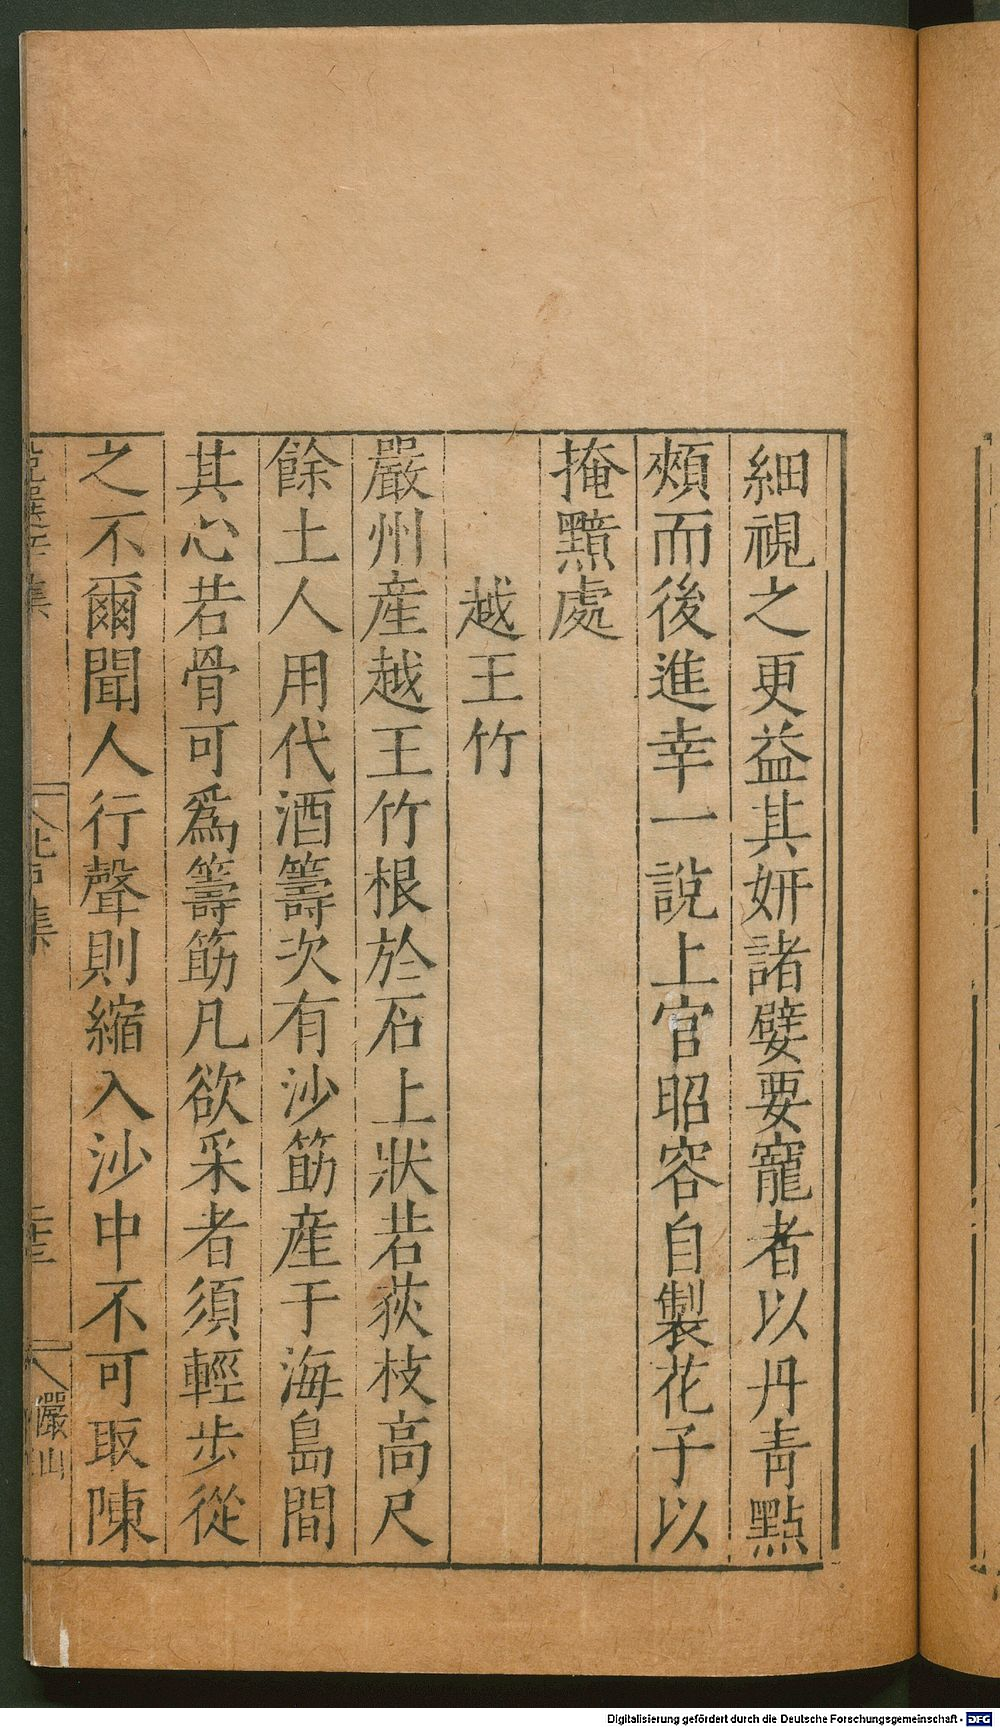 細視之更益其妍諸嬖要寵者以丹青點
頰而後進幸一說上官昭容自製花子以
掩黥處
越王竹
嚴州産越王竹根於石上狀若荻枝高尺
餘土人用代酒籌次有沙筯産于海島間
其心若骨可爲籌筯凡欲采者須輕步從
之不爾聞人行聲則縮入沙中不可取陳
集
儼山
Digitalisierung gefördert durch die Deutsche Forschungsgemeinschaft - DFG